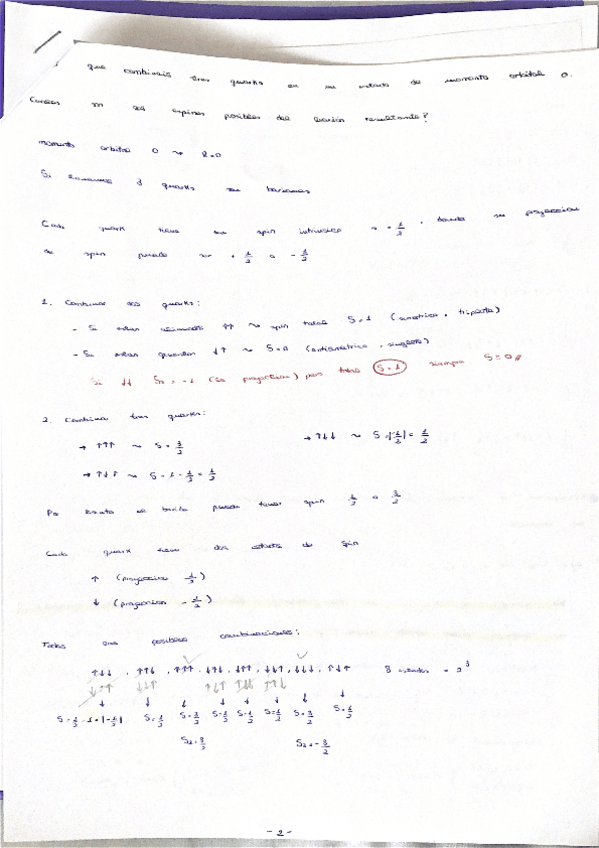 que combinais tres quarks en un estado de momento orbital 0.
Cuales son los espines posibles del barión resultante?
momento orbital 0 ⇝ l = 0
Si tenemos 3 quarks son bariones
Cada quark tiene un spin intrínseco = 1/2, donde su proyeccion
de spin puede ser + 1/2 o - 1/2
1. Combinar dos quarks:
- Si estan alineados ↑↑ ⇝ spin total S = 1 (simétrico, triplete)
- Si estan ↓↑ ⇝ S = 0 (antisimétrico, singlete)
Si ↓↓ Sz = -1 (la proyeccion) pero total S = 1 siempre S ≥ 0
2. Combinar tres quarks:
→ ↑↑↑ ⇝ S = 3/2 → ↑↓↓ ⇝ S = |-1/2| = 1/2
→ ↑↓↑ ⇝ S = 1 - 1/2 = 1/2
Por tanto el barión puede tener spin 1/2 o 3/2
Cada quark tiene dos estados de spin
↑ (proyeccion 1/2)
↓ (proyeccion - 1/2)
Todas las posibles combinaciones:
↑↓↓, ↑↑↓, ↑↑↑, ↓↑↓, ↓↑↑, ↓↓↑, ↓↓↓, ↑↓↑ 8 estados = 2³
S = 1/2 - 1 = |-1/2| S = 1/2 S = 3/2 S = 1/2 S = 1/2 S = 1/2 S = 3/2 S = 1/2
Sz = 3/2 Sz = - 3/2
- 2 -